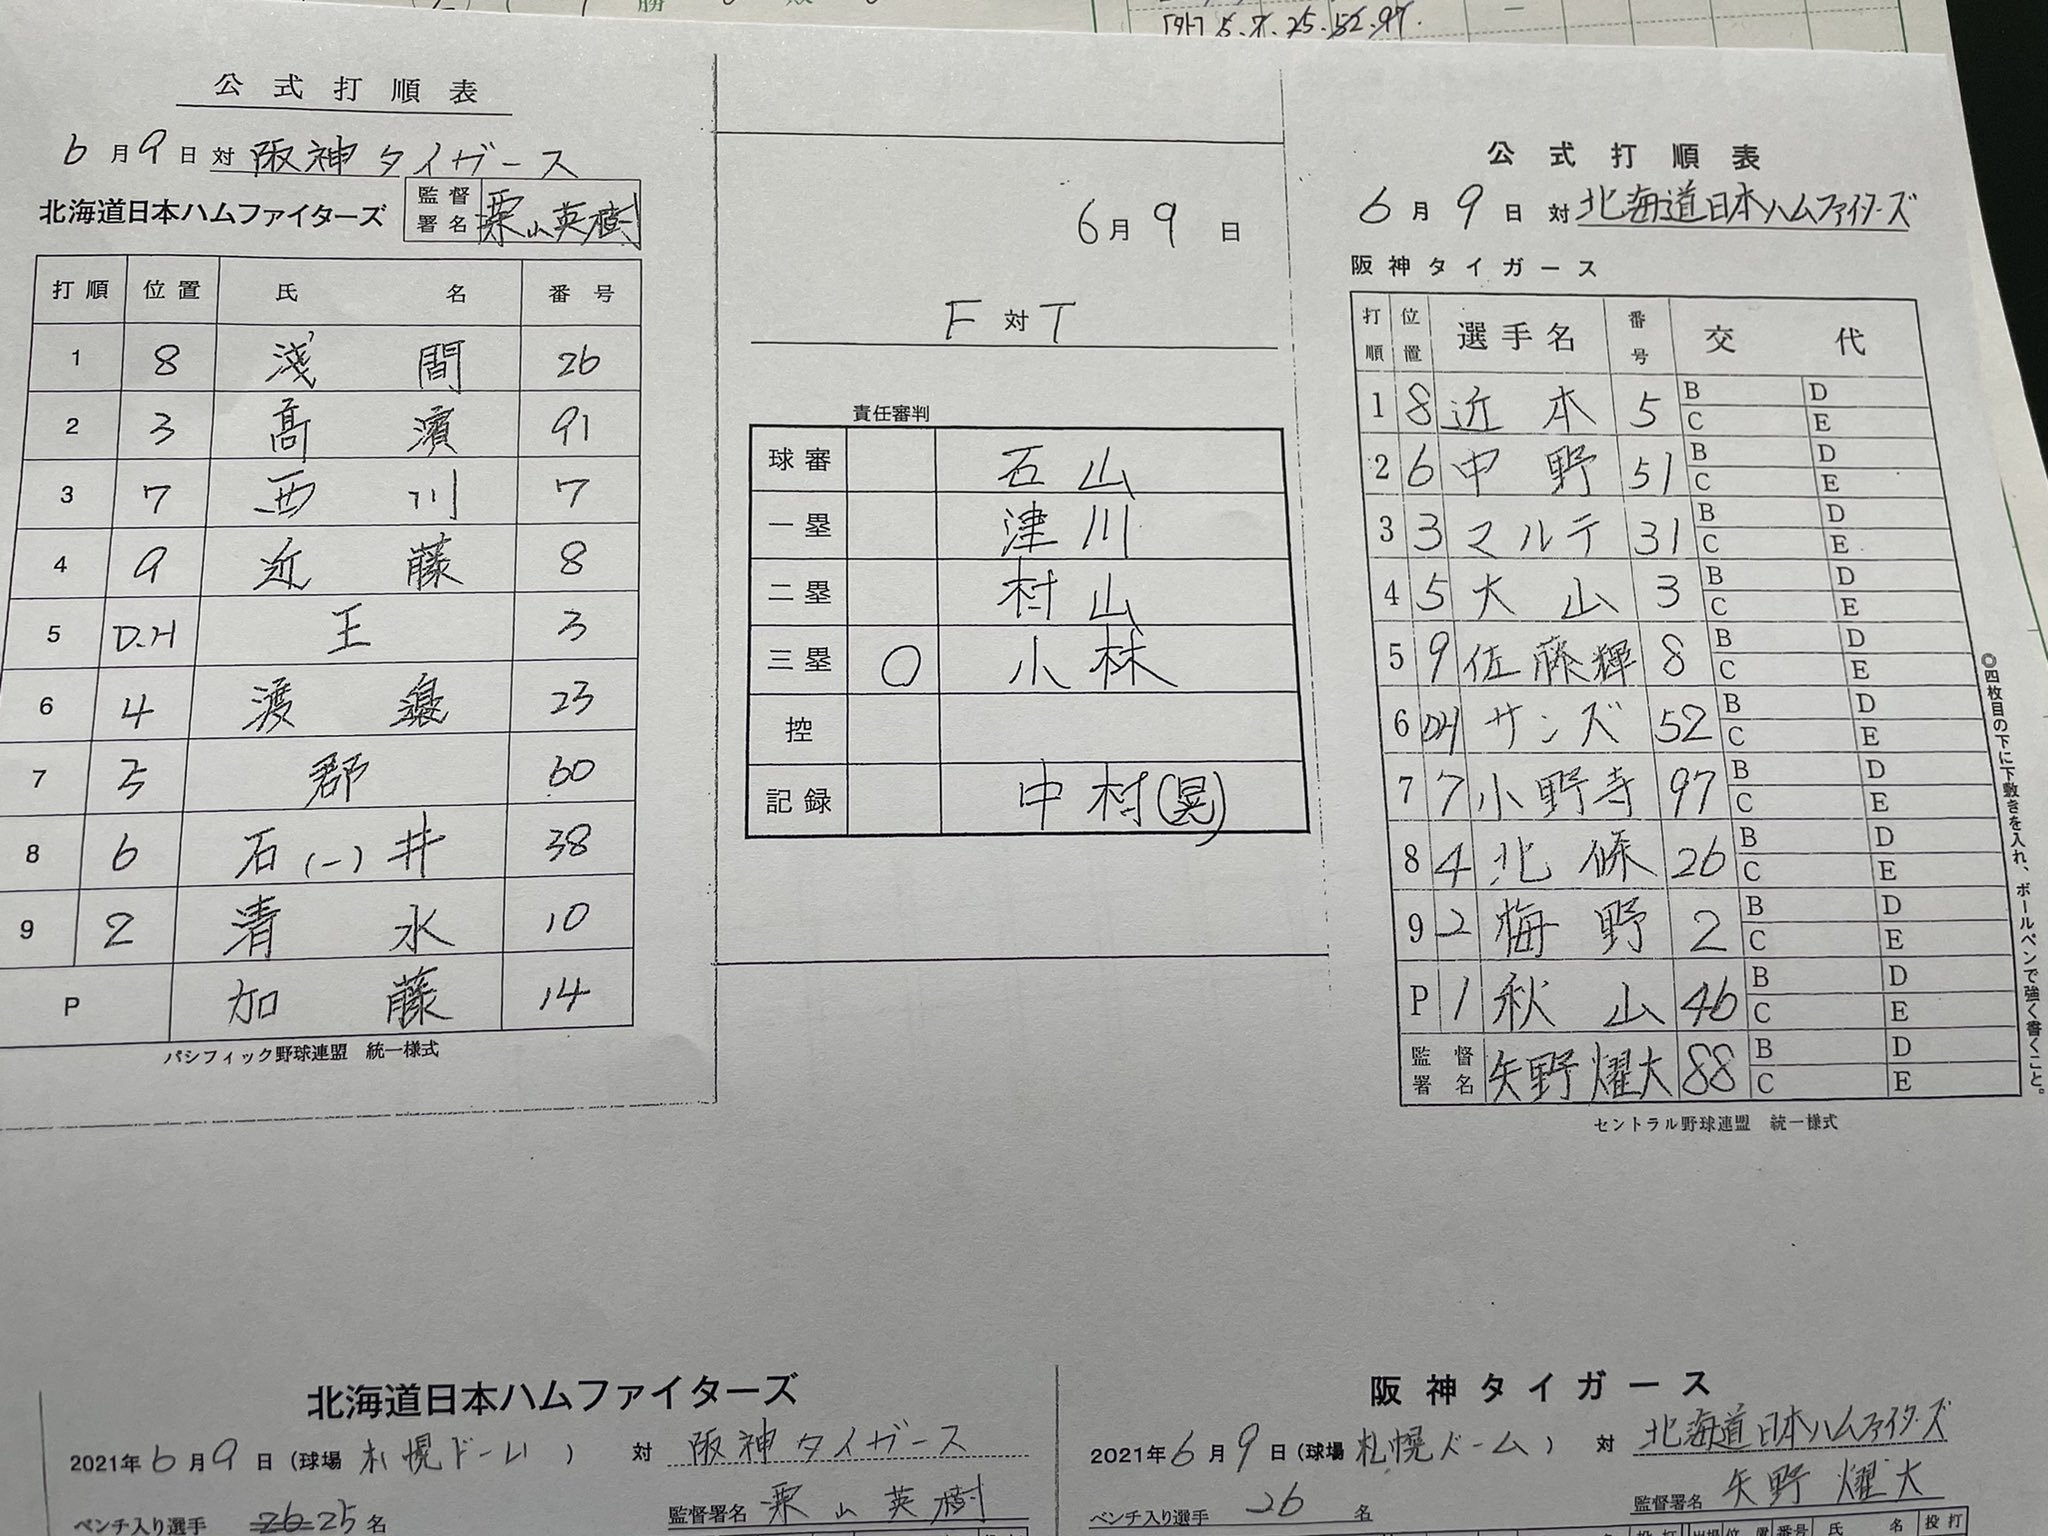 勝
[外] 5.7.25.52.97.
公式打順表
6月9日対 阪神タイガース
北海道日本ハムファイターズ 監督署名 栗山英樹
打順 位置 氏名 番号
1 8 淺間 26
2 3 髙濱 91
3 7 西川 7
4 9 近藤 8
5 D.H 王 3
6 4 渡邉 23
7 5 郡 60
8 6 石(一)井 38
9 2 清水 10
P 加藤 14
パシフィック野球連盟 統一様式
6月9日
F対T
責任審判
球審 石山
一塁 津川
二塁 村山
三塁 ○ 小林
控
記録 中村(晃)
公式打順表
6月9日対 北海道日本ハムファイターズ
阪神タイガース
打順 位置 選手名 番号 交代
1 8 近本 5 B D
C E
2 6 中野 51 B D
C E
3 3 マルテ 31 B D
C E
4 5 大山 3 B D
C E
5 9 佐藤輝 8 B D
C E
6 DH サンズ 52 B D
C E
7 7 小野寺 97 B D
C E
8 4 北條 26 B D
C E
9 2 梅野 2 B D
C E
P 1 秋山 46 B D
C E
監督署名 矢野燿大 88 B D
C E
セントラル野球連盟 統一様式
◎四枚目の下に下敷きを入れ、ボールペンで強く書くこと。
北海道日本ハムファイターズ
2021年6月9日(球場 札幌ドーム) 対 阪神タイガース
ベンチ入り選手 26 25名 監督署名 栗山英樹
阪神タイガース
2021年6月9日(球場 札幌ドーム) 対 北海道日本ハムファイターズ
ベンチ入り選手 26 名 監督署名 矢野燿大
位置 番号 氏名 投打